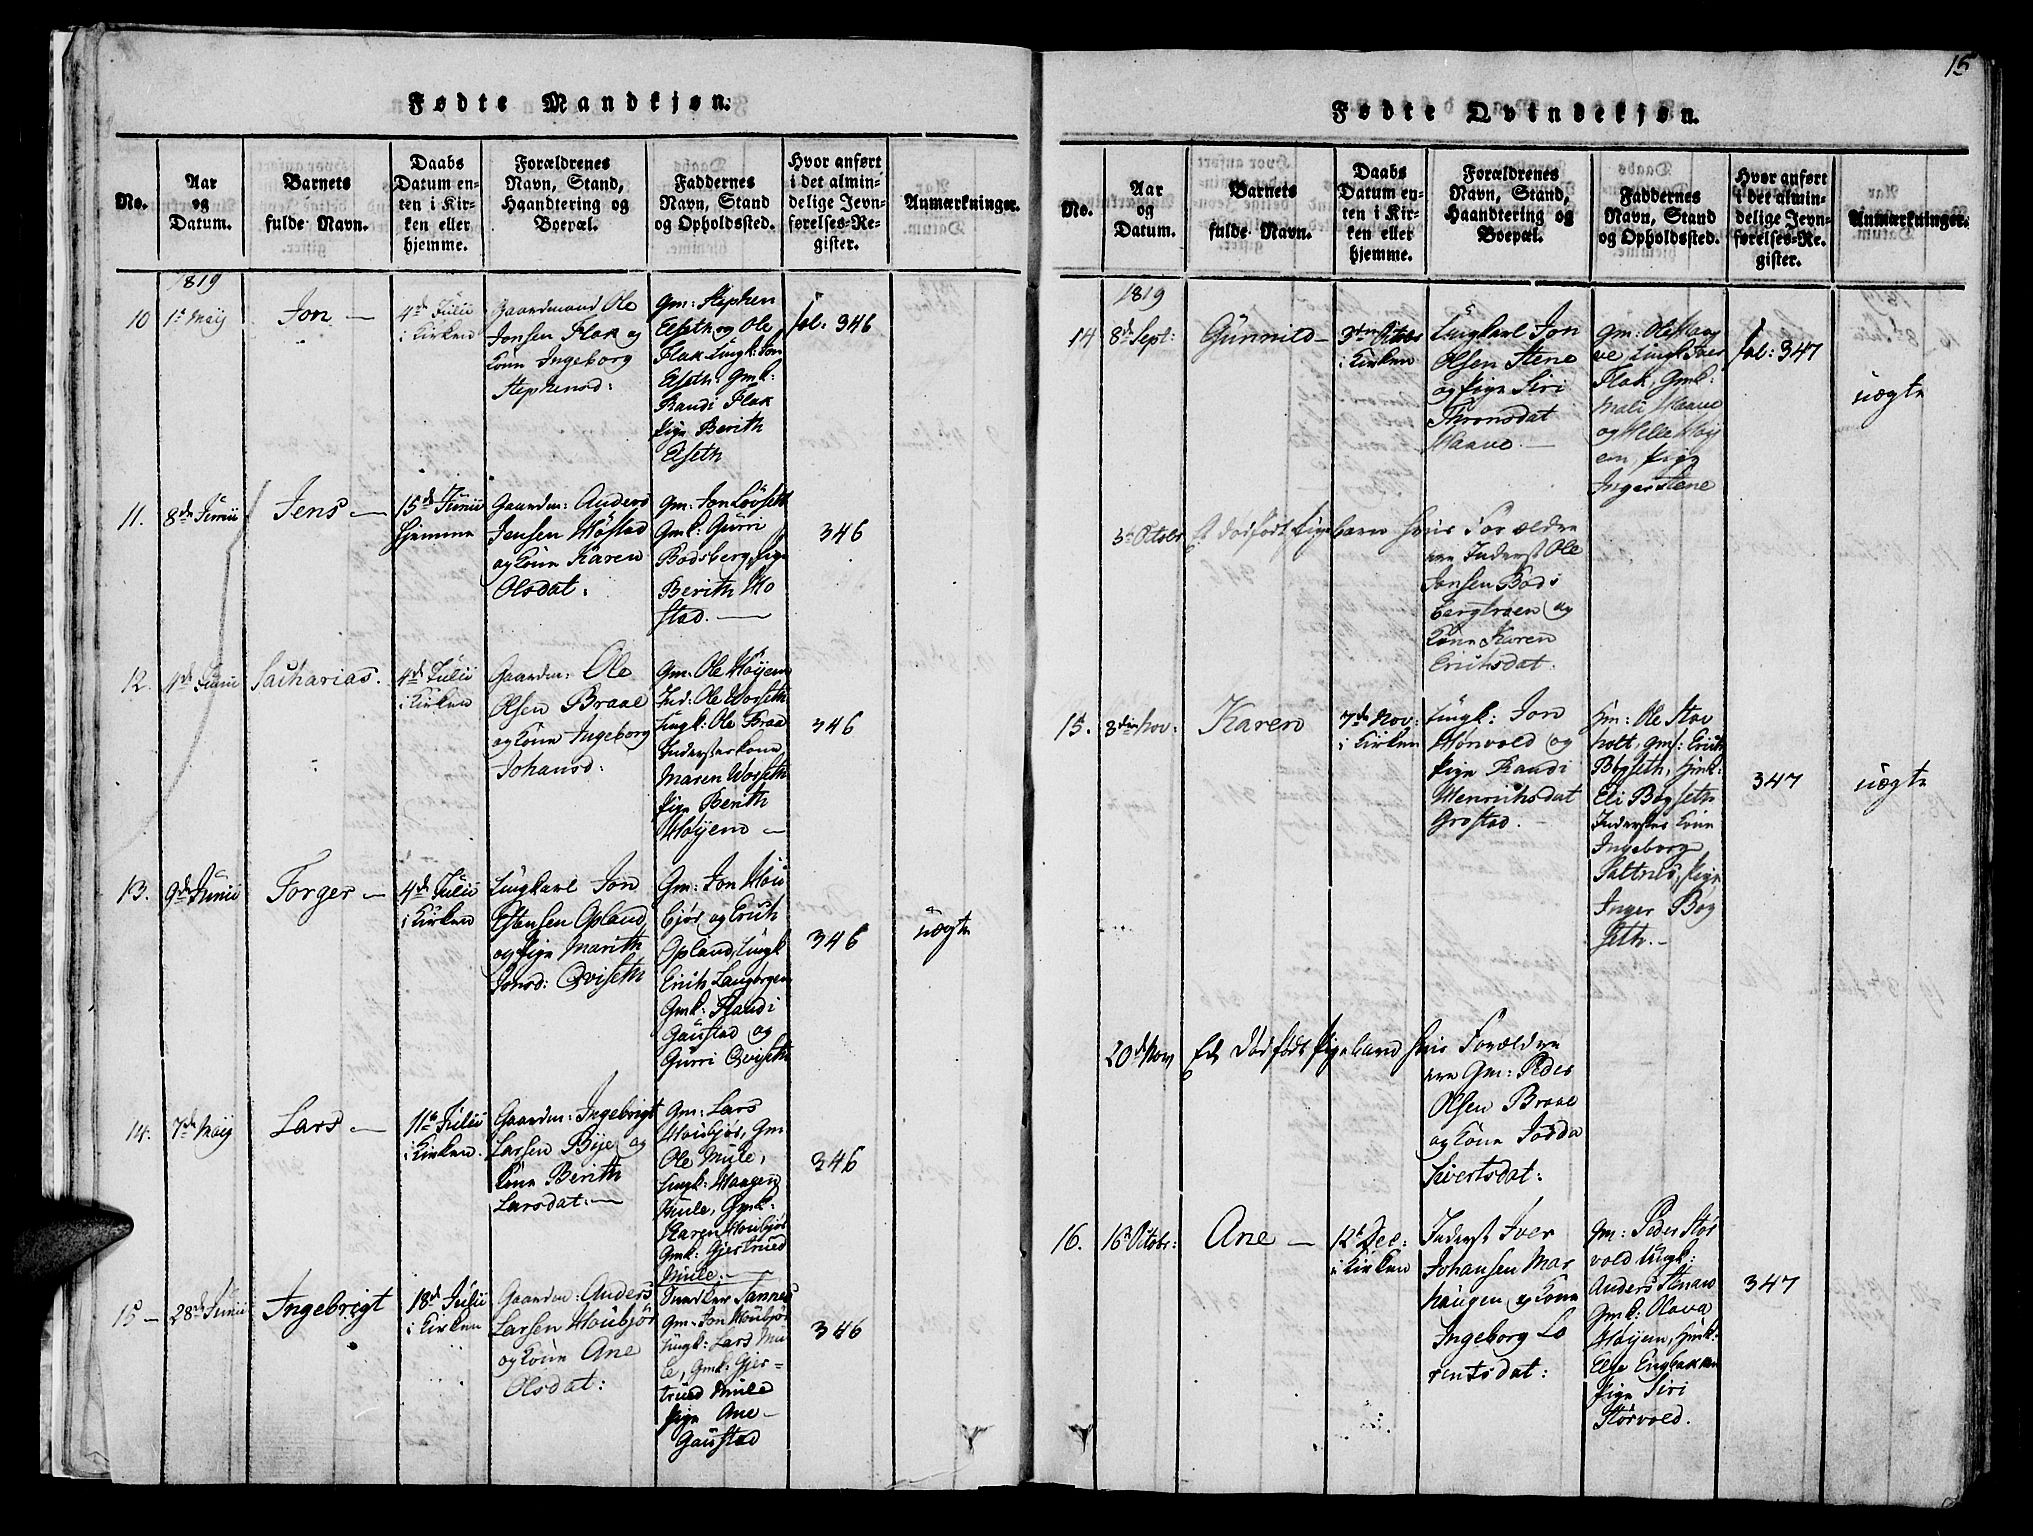 15
Fødte Mandkjøn.
No.
Aar
og
Datum.
Barnets
fulde Navn.
Daabs
Datum en-
ten i Kir-
ken eller
hjemme.
Forældrenes
Navn, Stand,
Haandtering og
Boepæl.
Faddernes
Navn, Stand
og Opholdssted.
Hvor anført
i det almin-
delige Jevn-
førelses-Re-
gister.
Anmærkninger.
1819
10
1ste Maij
Jon —
4de Julii
i Kirken
Gaardmand Ole
Jonsen Flak og
Kone Ingeborg
Stephensd:
Gm: Stephen
Elseth og Ole
Flak Ungk: Jon
Elseth. Gmk:
Randi Flak
Pige Berith
Elseth
fol: 346
11.
8de Junii
Jens —
15de Junii
hjemme
Gaardm: Anders
Jensen Høstad
og Kone Karen
Olsdat:
Gm: Jon Løvseth
Gmk: Gurri
Bodsberg, Pige
Berith Ho
stad. —
346
12.
4de Junii
Sacharias.
4de Julii
i Kirken
Gaardm: Ole
Olsen Braae
og Kone Ingeborg
Johansd:
Gm: Ole Høyem
Ind: Ole Worseth
Ungk: Ole Braae
Inderster kone
Maren Worseth
Pige Berith
Høyem —
346
13.
9de Junii
Torger —
4de Julii
i Kirken
Ungkarl Jon
Estensen Opland
og Pige Marith
Jonsd: Qviseth
Gm: Jon Hou
bjør og Erich
Opland, Ungk
Erich Langørgen
Gmk: Randi
Gaustad og
Gurri Qviseth
346
uægte
14.
7de Maij
Lars —
11te Julii
i Kirken.
Gaardm: Ingebrigt
Larsen Bye og
Kone Berith
Larsdat: —
Gm: Lars
Houbjør, Gm
Ole Mule,
Ungk: Haagen
Mule, Gmk:
Karen Houbjør
Gmk: Gjertrued
Mule. —
346
15 —
28de Junii
Ingebrigt
18de Julii
i Kirken
Gaardm: Anders
Larsen Houbjør
og Kone Ane
Olsdat:
Snedker Sannes
Gm: Jon Houbjør
Ungk: Lars Mu
le, Gmk: Gjer-
trued Mule
Pige Ane
Gaustad
346
Fødte Qvindekjøn.
No.
Aar
og
Datum.
Barnets
fulde Navn.
Daabs
Datum en-
ten i Kir-
ken eller
hjemme.
Forældrenes
Navn, Stand,
Haandtering og
Boepæl.
Faddernes
Navn, Stand
og Opholdssted.
Hvor anført
i det almin-
delige Jevn-
førelses-Re-
gister.
Anmærkninger.
1819
14
8de Sept:
Gunnild —
3die Octobr
i Kirken
Ungkarl Jon
Olsen Stene
og Pige Siri
Thronsdat
Haave. —
Gm: Ole Haa
ve, Ungk Iver
Flak, Gmk:
Mali Haave
og Helle Høy
em, Pige
Inger Stene
fol: 347
uægte
3de Octobr
Et dødfødt Pigebarn hvis Forældre
ere Inderst Ole
Jonsen Bods
bergtrøen og
Kone Karen
Erichsdat.
15.
3die Nov:
Karen
7de Nov:
i Kirken
Ungk: Jon
Hønvold og
Pige Randi
Henrichsdat
Grostad. —
Hm: Ole Stov
holt, Gm: Erich
Bøgseth, Hmk:
Eli Bøgseth
Inderstes Kone
Ingeborg
Saltnes, Pige
Inger Bøg
seth. —
347
uægte
20de Nov
Et Dødfødt Pigebarn hvis Forældre
ere Gm: Peder
Olsen Braae
og Kone Jødda
Sivertsdat:
16.
16de Octobr:
Ane —
12te Dec:
i Kirken
Inderst Iver
Johansen Mar
haugen og Kone
Ingeborg Lo
rentsdat:
Gm: Peder Stor
vold Ungk:
Anders Stenaas
Gmk: Olava
Høyem, Hmk:
Else Engbakken
Pige Siri
Storvold.
347